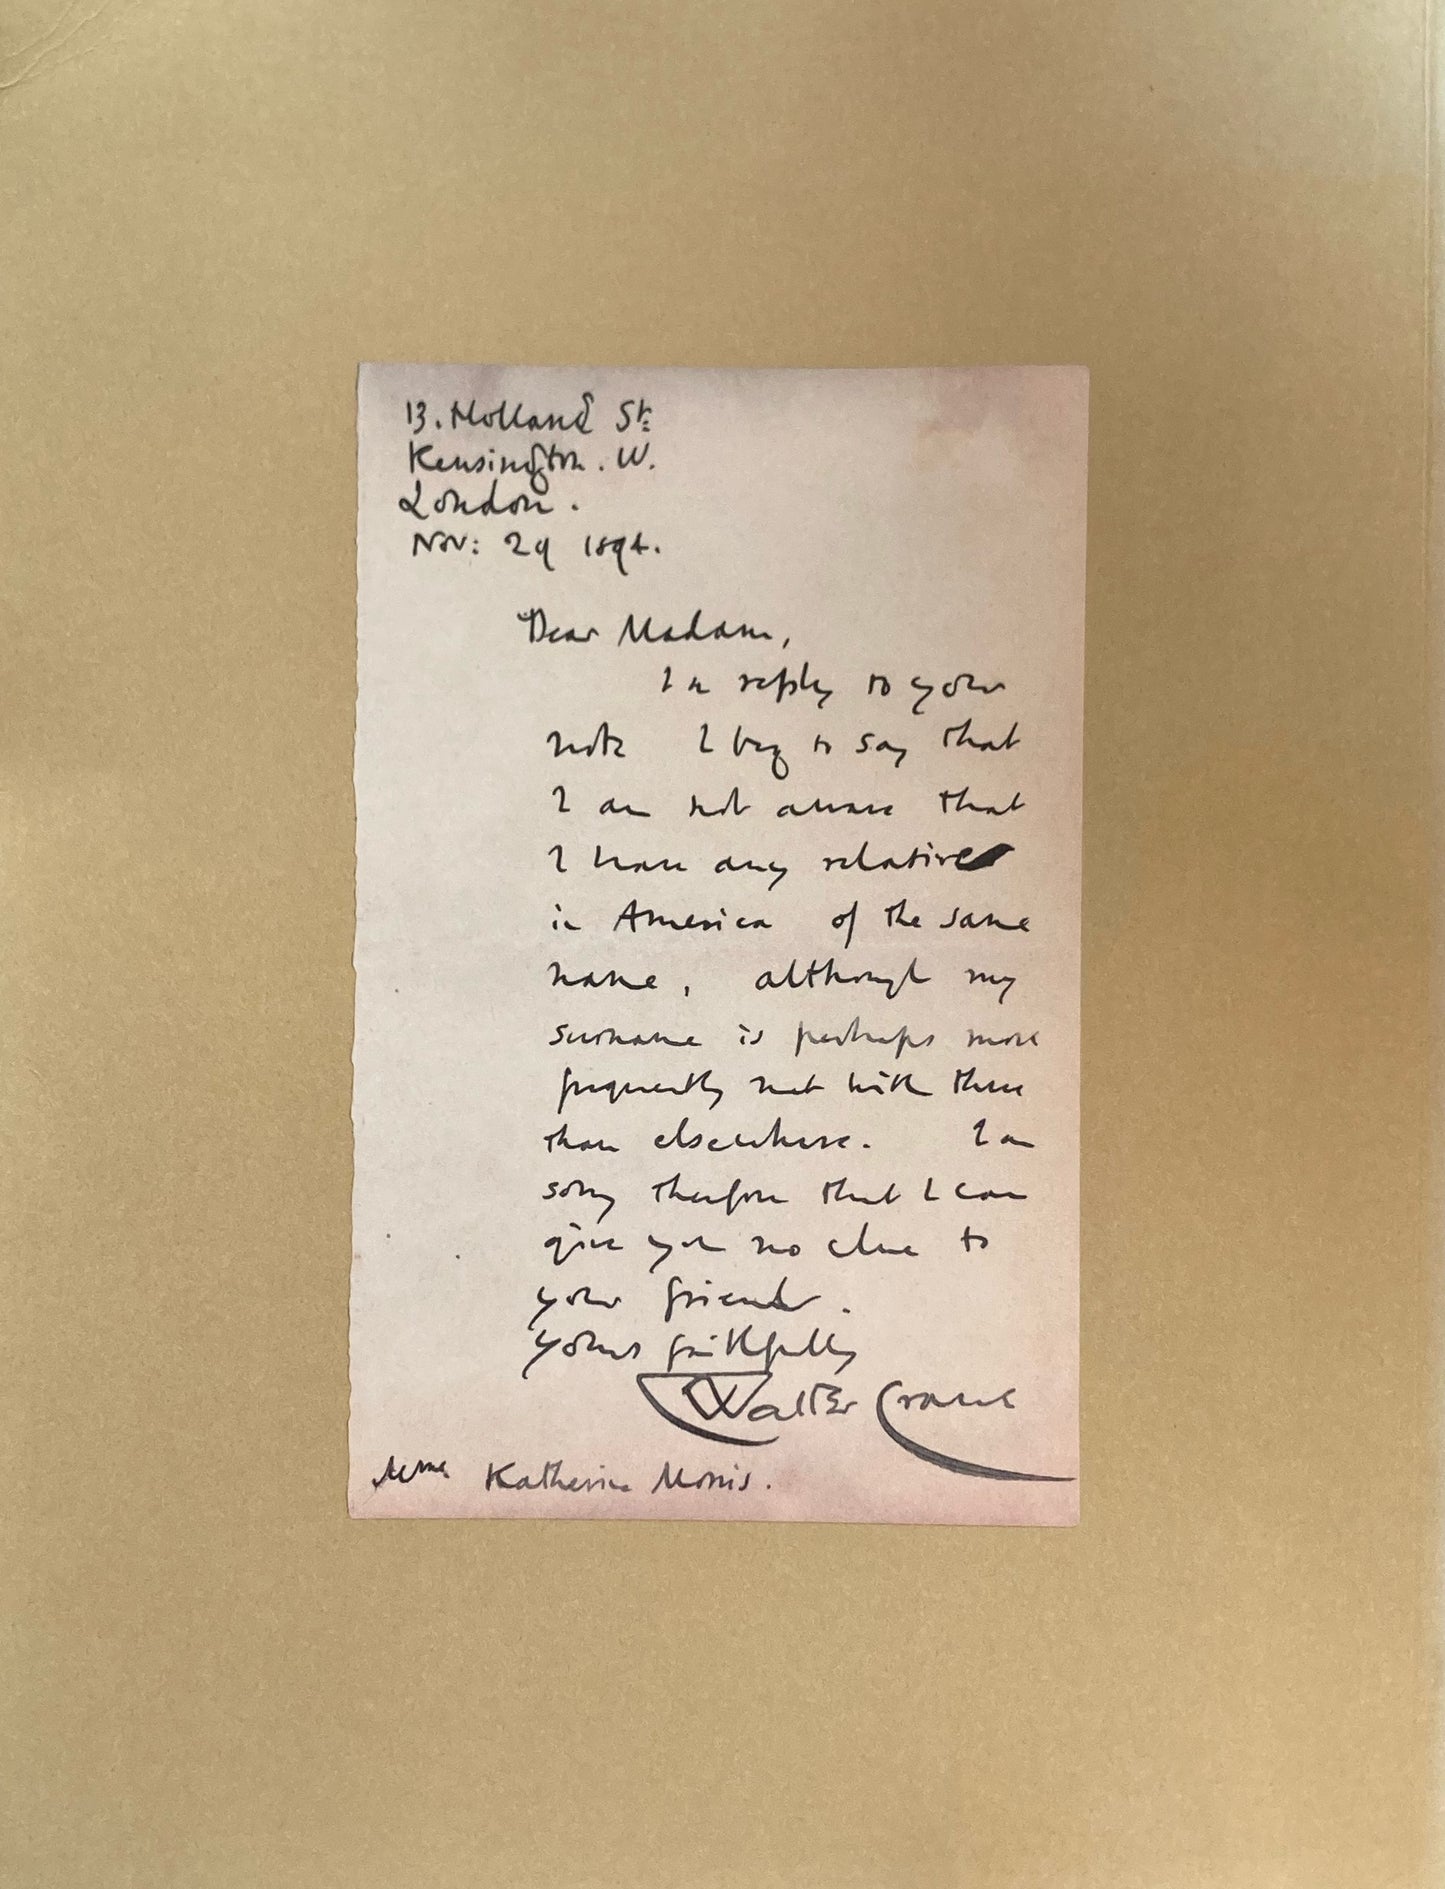 13. Holland St:
Kensington. W.
London.
Nov: 29 1894.
Dear Madam,
In reply to your
note I beg to say that
I am not aware that
I have any relative
in America of the same
name, although my
surname is perhaps more
frequently met with there
than elsewhere. I am
sorry therefore that I can
give you no clue to
your friend.
Yours faithfully
Walter Crane
Mme Katherine Morris.